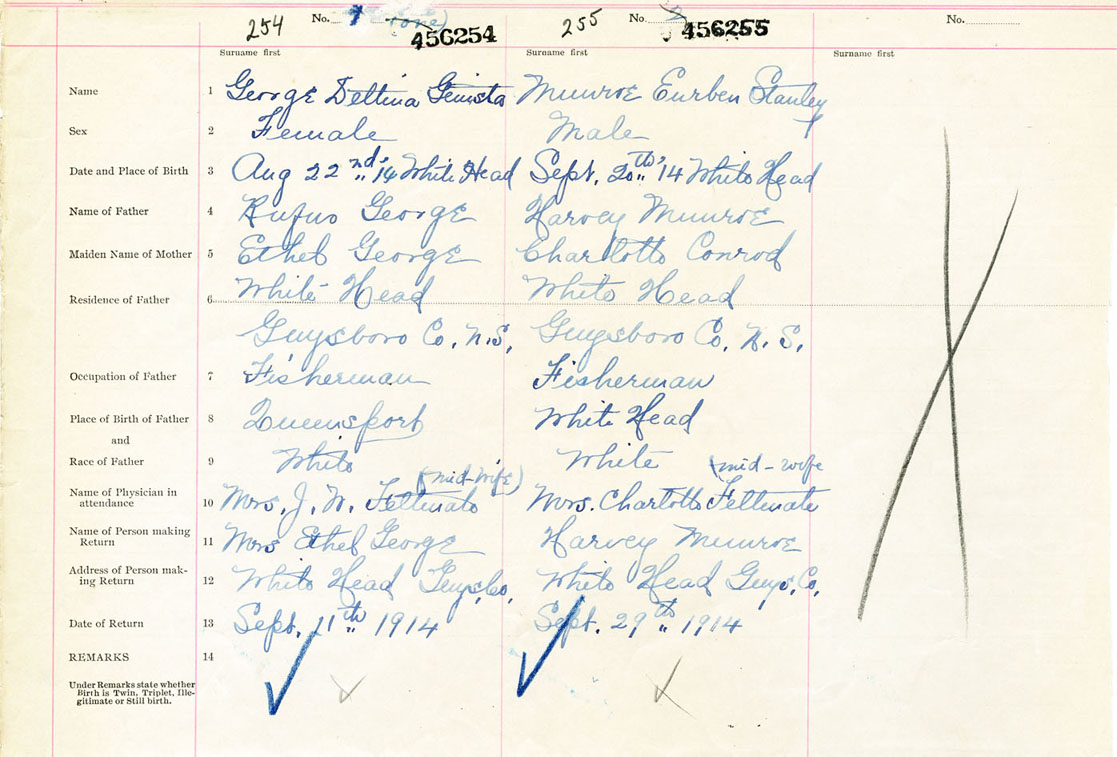 254 No. 255 No. No.
456254 456255
Surname first Surname first Surname first
Name 1 George Deltina Genista Munroe Eurben Stanley
Sex 2 Female Male
Date and Place of Birth 3 Aug 22nd, '14 White Head Sept. 20th, '14 White Head
Name of Father 4 Rufus George Harvey Munroe
Maiden Name of Mother 5 Ethel George Charlotte Conrod
Residence of Father 6 White Head White Head
Guysboro Co. N.S. Guysboro Co, N. S.
Occupation of Father 7 Fisherman Fisherman
Place of Birth of Father 8 Queensport White Head
and
Race of Father 9 White White
(mid-wife) (mid-wife
Name of Physician in
attendance 10 Mrs. J. W. Feltmate Mrs. Charlotte Feltmate
Name of Person making
Return 11 Mrs Ethel George Harvey Munroe
Address of Person mak-
ing Return 12 White Head Guys. Co. White Head Guys. Co.
Date of Return 13 Sept. 11th 1914 Sept. 29th 1914
REMARKS 14
Under Remarks state whether
Birth is Twin, Triplet, Ille-
gitimate or Still birth.